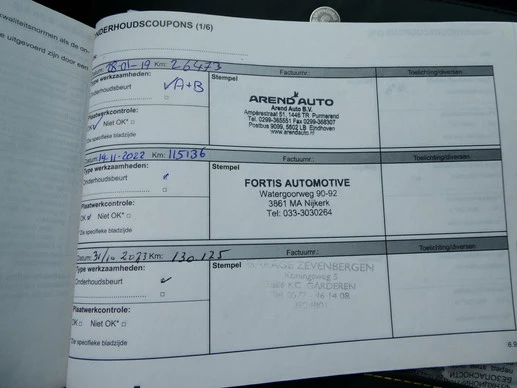 waliteitsnormen als de on-
e uitgevoerd zijn door een
ONDERHOUDSCOUPONS (1/6)
Datum: 28-01-19 Km: 26473
Factuurnr.:
Toelichting/diversen
Type werkzaamheden:
Onderhoudsbeurt ✓A+B
Stempel
Plaatwerkcontrole:
OK ✓ Niet OK* □
*Zie specifieke bladzijde
AREND AUTO
Arend Auto B.V.
Ampèrestraat 51, 1446 TR Purmerend
Tel. 0299-365551 Fax 0299-368307
Postbus 9099, 5602 LB Eindhoven
www.arendauto.nl
Datum: 14-11-2022 Km: 115136
Factuurnr.:
Toelichting/diversen
Type werkzaamheden:
Onderhoudsbeurt
Stempel
Plaatwerkcontrole:
OK Niet OK* □
*Zie specifieke bladzijde
FORTIS AUTOMOTIVE
Watergoorweg 90-92
3861 MA Nijkerk
Tel: 033-3030264
Datum: 31/10 2023 Km: 130.125
Factuurnr.:
Toelichting/diversen
Type werkzaamheden:
Onderhoudsbeurt ✓
Stempel
Plaatwerkcontrole:
OK □ Niet OK* □
*Zie specifieke bladzijde
GARAGE ZEVENBERGEN
Koningsweg 5
GARDEREN
6.9
БЕЗОПАСНОСТИ